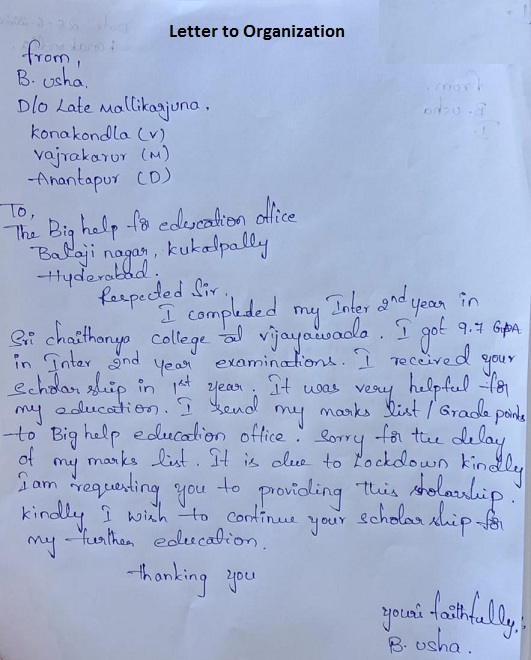 Letter to Organization
from,
B. usha.
D/o Late Mallikarjuna.
konakondla (V)
vajrakarur (M)
Anantapur (D)
To,
The Big help for education office
Balaji nagar, kukatpally
Hyderabad.
Respected Sir,
I completed my Inter 2nd year in
Sri chaithanya college at vijayawada. I got 9.7 GPA
in Inter 2nd year examinations. I received your
scholar ship in 1st year. It was very helpful for
my education. I send my marks list / Grade points
to Big help education office. sorry for the delay
of my marks list. It is due to Lockdown kindly
I am requesting you to providing this sholarship.
kindly I wish to continue your scholar ship for
my further education.
Thanking you
yours faithfully,
B. usha.